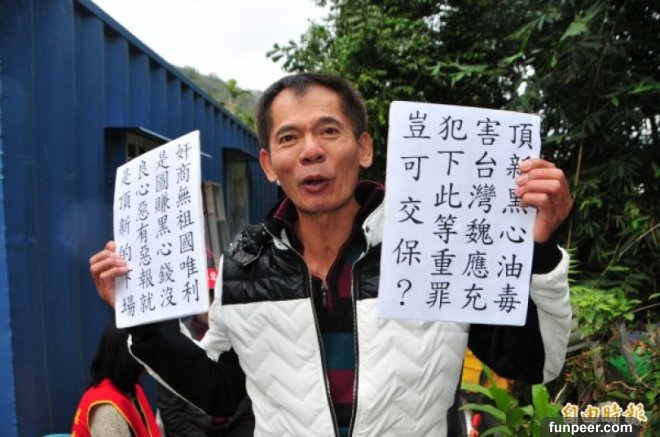 頂新黑心油毒
害台灣魏應充
犯下此等重罪
豈可交保？
奸商無祖國唯利
是圖賺黑心錢沒
良心惡有惡報就
是頂新的下場
自由時報
funpeer.com